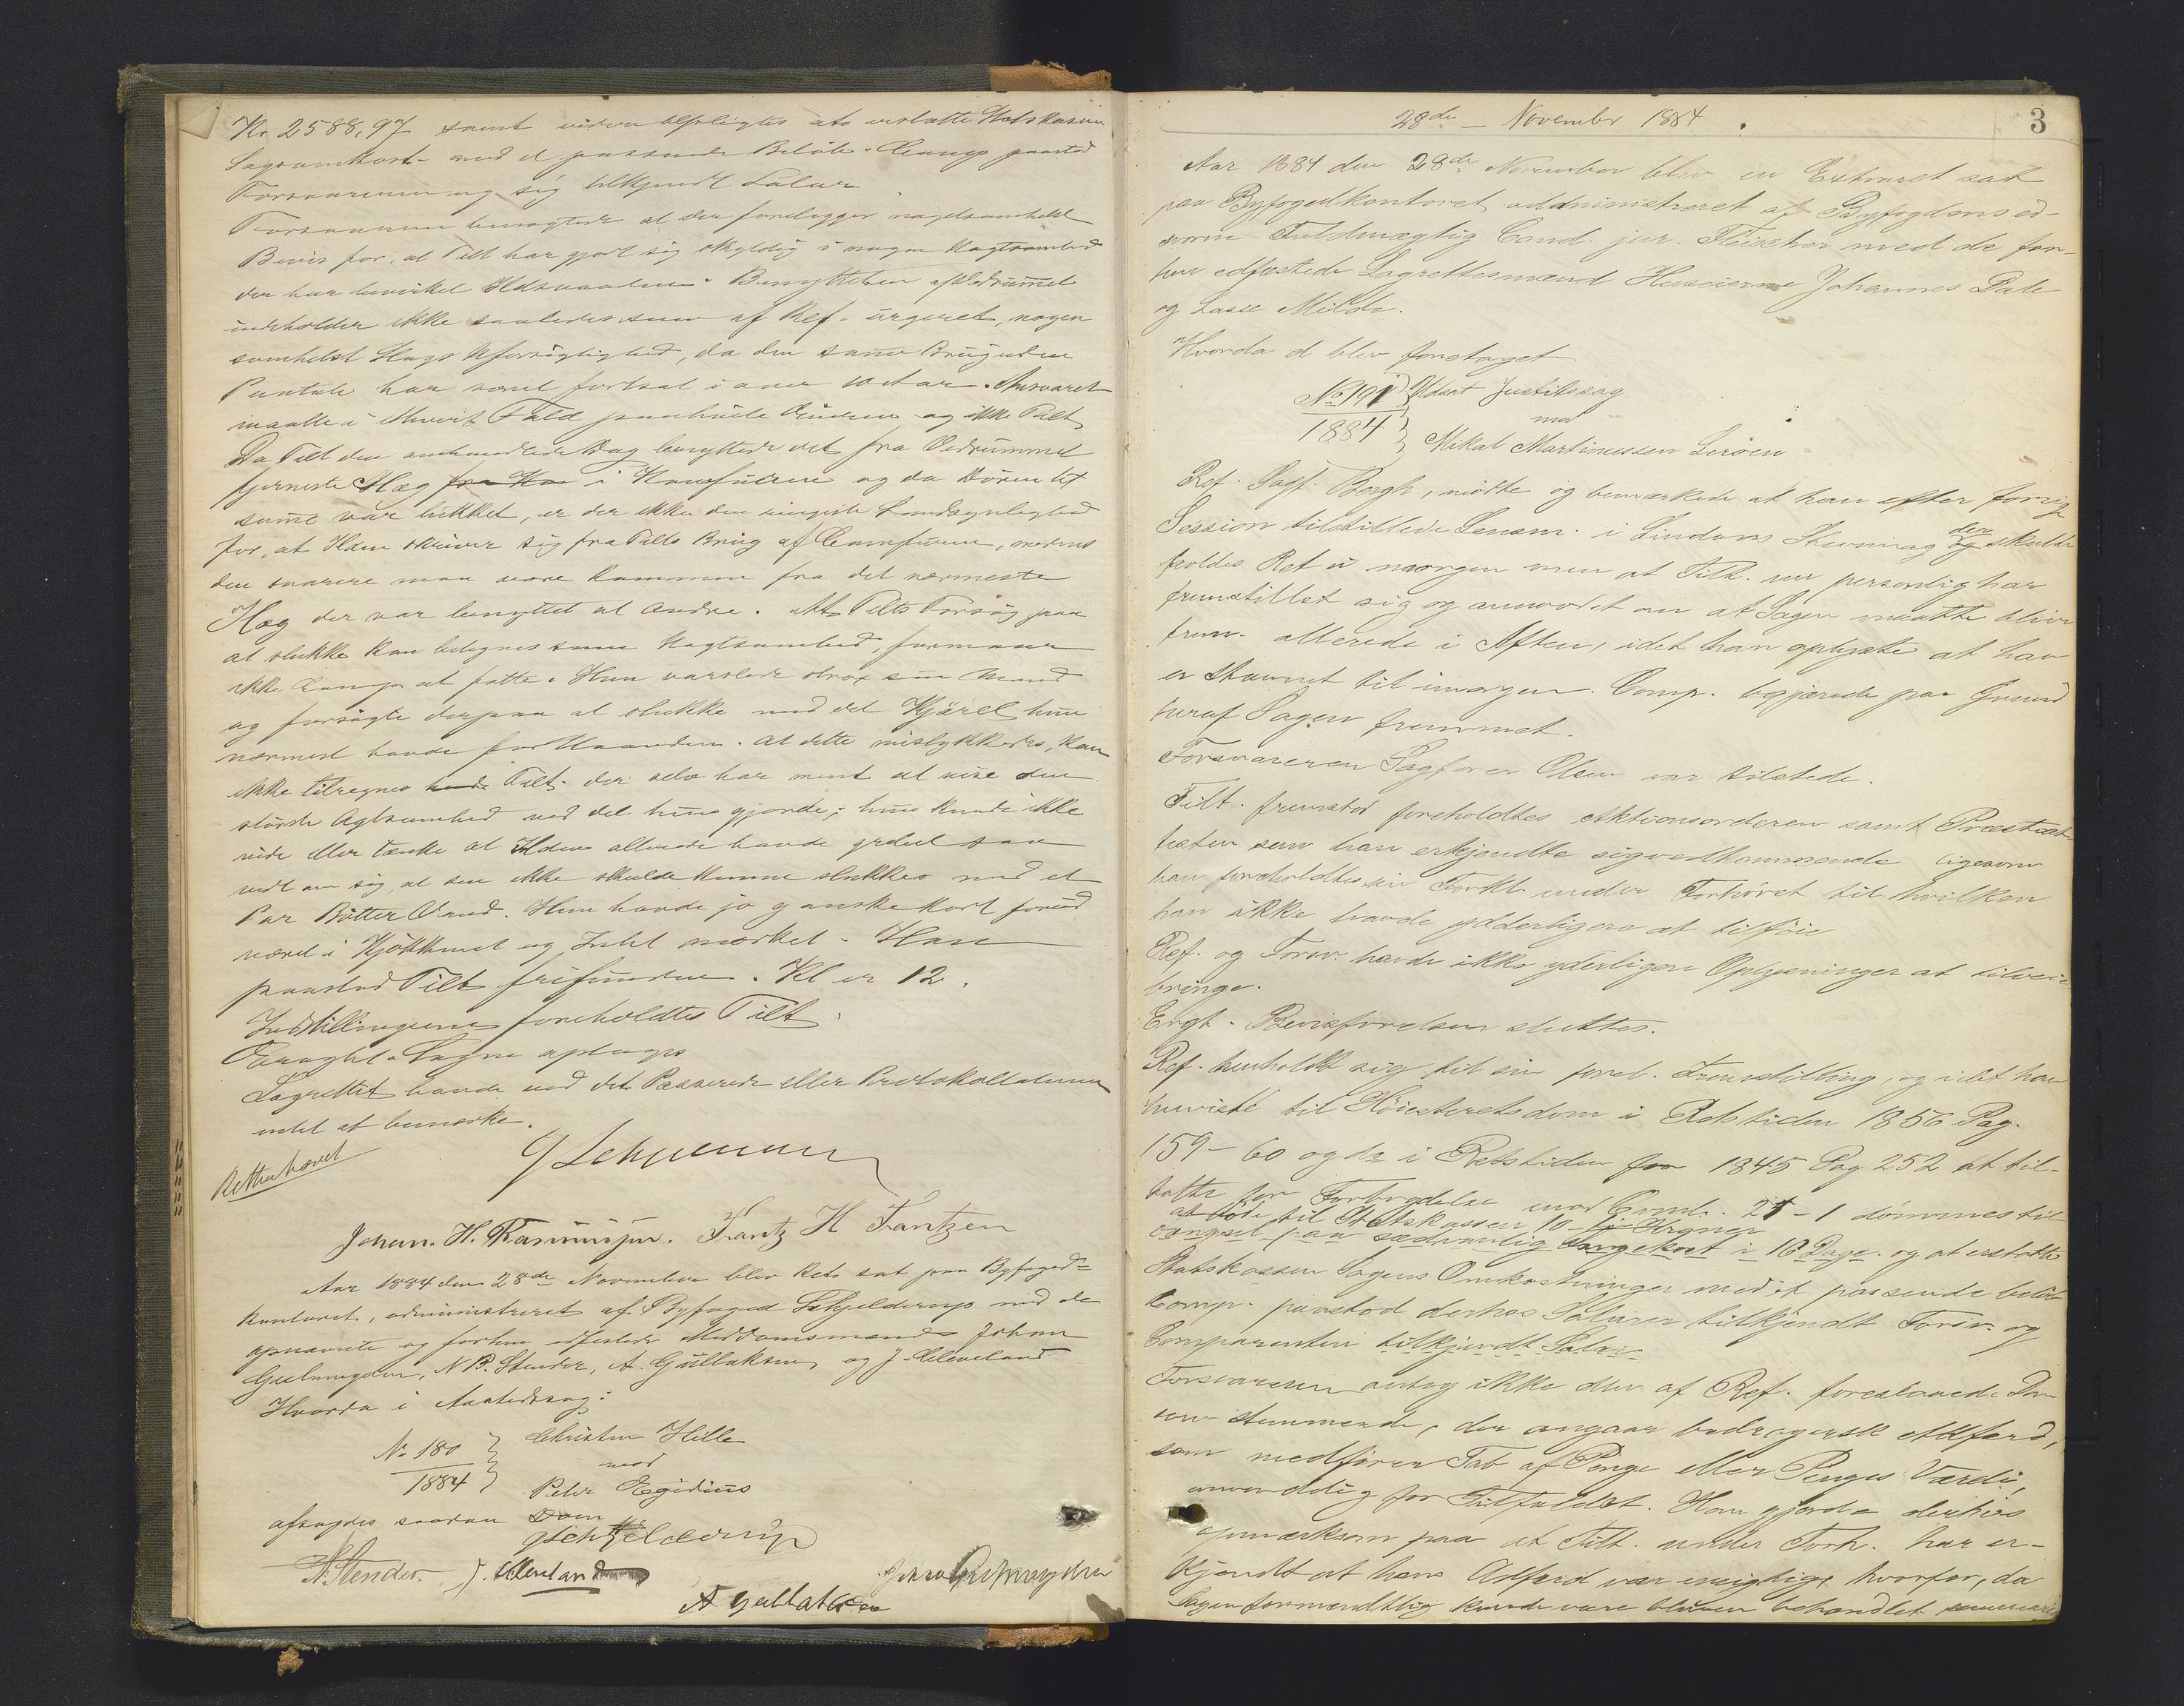 Kr. 2588,97 samt videre tilpligtes at erstatte Statskassen
Sagsomkost. med et passende Beløb. Comp. paastod
Forsvareren og sig tilkjendt Salær.
Forsvareren benegtede at der foreligger nogetsomhelst
Bevis for, at Tilt har gjort sig skyldig i nogen Uagtsomhed
der har bevirket Ildsvaaden. Benyttelsen af Vedrummet
indeholder ikke saaledes som af Ref. urgeret, nogen
somhelst Slags Uforsigtighed, da den samme Brug uden
Paatale har været fortsat i over 10 Aar. Ansvaret
maatte i ethvert Fald paahvile Eieren og ikke Tilt
Da Tilt den omhandlede Dag benyttede det fra Vedrummet
fjerneste Hæg fra Kom i Komfuren og da Døren til
samme var lukket, er der ikke den ringeste Sandsynlighed
for, at Ilden skriver sig fra Tilts Brug af Comfuren, medens
den snarere maa være kommen fra det nærmeste
Hæg der var benyttet af Andre. At Tilts Forsøg paa
at slukke kan betegnes som Uagtsomhed, formaar
ikke Comp. at fatte. Hun varslede strax sin Mand
og forsøgte derpaa at slukke med det Kjärel hun
nærmest havde for Haanden. At dette mislykkedes, kan
ikke tilregnes hende Tilt. der selv har ment at vise den
største Agtsomhed ved det hun gjorde; hun kunde ikke
vide eller tænke at Ilden allerede havde grebet saa
vidt om sig, at den ikke skulde kunne slukkes med et
Par Bøtter Vand. Hun havde jo ganske kort forud
været i Kjøkkenet og Intet mærket. Han
paastod Tilt frifunden. Kl er 12.
Indstillingerne foreholdtes Tilt.
Eragtet. Sagen optages
Lagrettet havde ved det Passerede eller Protokollationen
intet at bemærke.
Retten hævet
Johan. H. Rasmussen. Frantz H Frantzen
Aar 1884 den 28de November blev Ret sat paa Byfoged=
kontoret, administreret af Byfoged Schjelderup med de
opnævnte og forhen edfæstede Meddomsmænd Johan
Geelmuyden, N B. Stender, A. Gullaksen og J. Cleveland
Hvorda i Aastedssag:
No 180
1884
Christen Hille
mod
Peter Egidius
afsagdes saadan Dom
GSchjelderup
N. Stender. J. Cleveland Johan Geelmuyden
A Gullaksen
28de – November 1884.
3
Aar 1884 den 28de November blev en Extraret sat
paa Byfogedkontoret administreret af Byfogdens ed-
svorne Fuldmægtig Cand. jur. Fleischer med de for-
hen edfæstede Lagrettesmænd Huseierne Johannes Dale
og Lasse Milde.
Hvorda d blev foretaget
No 191
1884
Udsat Justitssag
mod
Mikal Martinussen Lerøen
Ref. Sagf. Bergh, mødte og bemærkede at han efter forrige
Session tilstillede Lensm. i Lindaas Stevning og der skulde
holdes Ret i morgen men at Tilt. nu personlig har
fremstillet sig og anmodet om at Sagen maatte blive
frem. allerede i Aften, idet han oplyste at han
er stevnet til imorgen. Comp. begjærede paa Grund
heraf Sagen fremmet.
Forsvareren Sagfører Olsen var tilstede.
Tilt. fremstod foreholdtes Aktionsorderen samt Præsteat-
testen som han erkjendte sigvedkommende ligesom
han foreholdtes sin Forkl. under Forhøret til hvilken
han ikke havde ydderligere at tilføie
Ref. og Forsv. havde ikke yderligere Oplysninger at tilveie-
bringe.
Eragt. Bevisførelsen sluttes.
Ref. henholdt sig til sin forel. Fremstilling, og idet han
henviste til Høiesteretsdom i Retstiden 1856 Pag.
159–60 og do i Retstiden for 1845 Pag 252 at til-
talte for Forbrydelse mod Crml. 21–1 dømmes til
at bøde til Statskassen 10 – ti Kroner
Fængsel paa sædvanlig Fangekost i 16 Dage. og at erstatte
Statskassen Sagens Omkostninger med et passende beløb
Comp. paastod derhos Salærer tilkjendt Forsv. og
Comparenten tilkjendt Salær
Forsvareren antog ikke den af Ref. foreslaaede Dom
som stemmende, der angaar bedragersk Adfærd,
som medfører Tab af Penge eller Penges Værdi,
anvendelig for Tilfældet. Han gjorde derhos
opmærksom paa at Tilt. under Forh. har er-
kjendt at hans Adfærd var urigtig, hvorfor, da
Sagen formentlig kunde være bleven behandlet